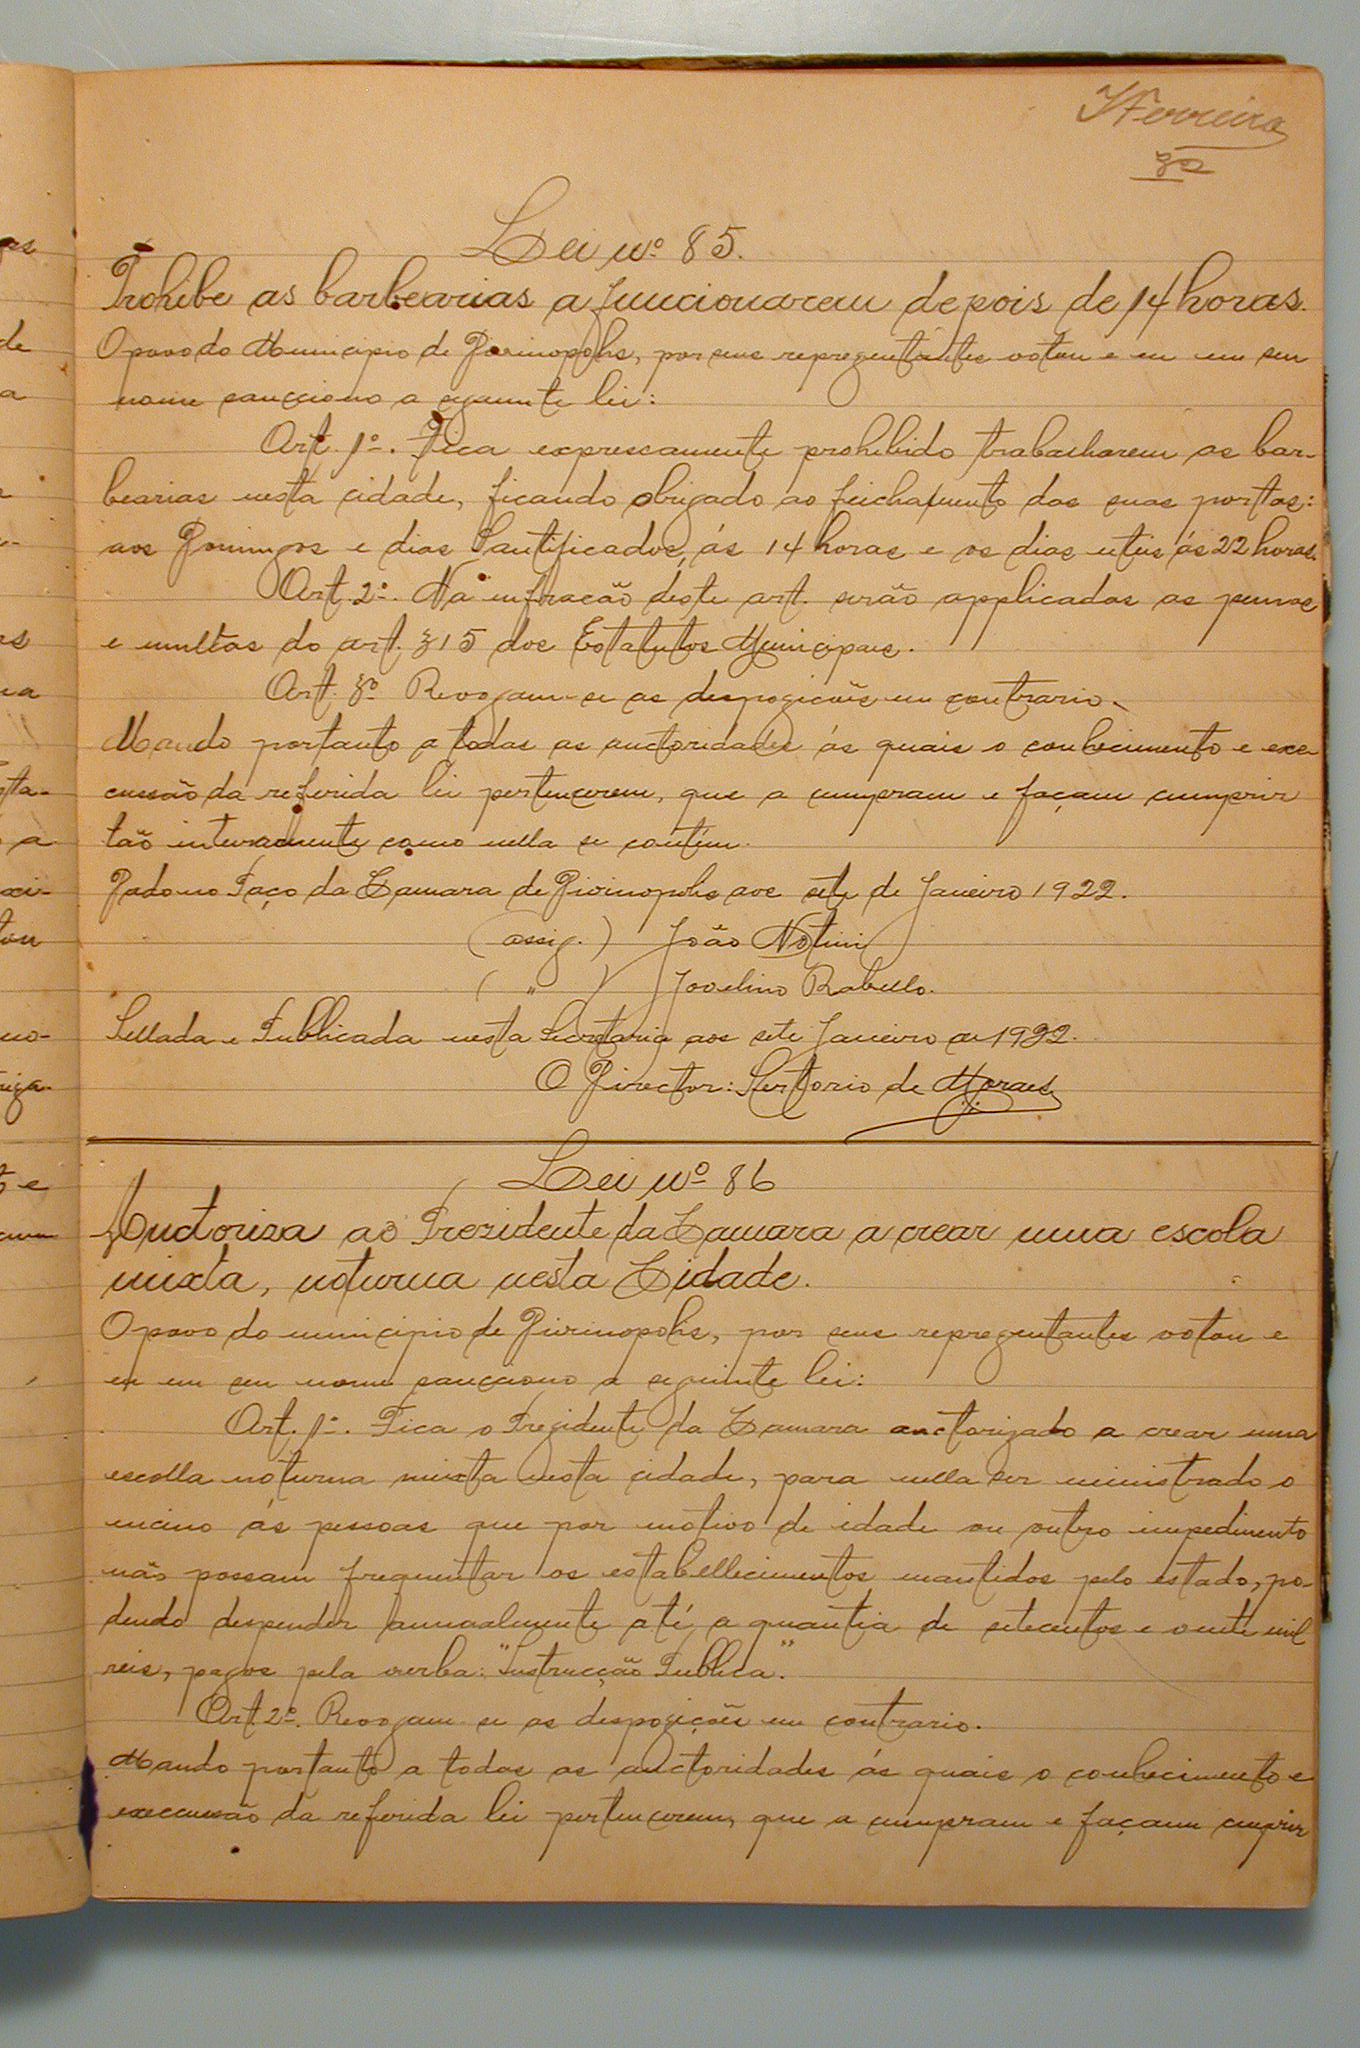 Ferreira
32
Lei nº 85.
Prohibe as barbearias a funcionarem depois de 14 horas.
O povo do Municipio de Divinopolis, por seus representantes votou e eu em seu
nome sancciono a seguinte lei:
Art. 1º. Fica expressamente prohibido trabalharem as bar-
bearias nesta cidade, ficando obrigado ao feichamento das suas portas:
aos Domingos e dias Santificados, ás 14 horas e os dias uteis ás 22 horas.
Art. 2º. Na infracão deste art. serão applicadas as penas
e multas do art. 315 dos Estatutos Municipaes.
Art. 3º Revogam-se as desposicões em contrario.
Mando portanto a todas as auctoridades ás quais o conhecimento e exe-
cussão da referida lei pertencerem, que a cumpram e façam cumprir
tão inteiramente como nella se contém.
Dado no Paço da Camara de Divinopolis aos sete de Janeiro 1922.
(assig.) João Notini
( " ) Jovelino Rabello.
Sellada e Publicada nesta Secretaria aos sete Janeiro de 1922.
O Director: Sertorio de Moraes
Lei nº 86
Auctorisa ao Prezidente da Camara a crear uma escola
mixta, noturna nesta Cidade.
O povo do municipio de Divinopolis, por seus representantes votou e
eu em seu nome sancciono a seguinte lei:
Art. 1º. Fica o Prezidente da Camara auctorizado a crear uma
escolla noturna mixta nesta cidade, para nella ser ministrado o
encino ás pessoas que por motivo de idade ou outro impedimento
não possam frequentar os estabellecimentos mantidos pelo estado, po-
dendo despender annualmente até a quantia de setecentos e vinte mil
reis, pagos pela verba: "Instrucção Publica".
Art. 2º. Revogam se as desposições em contrario.
Mando portanto a todas as auctoridades ás quais o conhecimento e
execussão da referida lei pertencerem, que a cumpram e façam cumprir